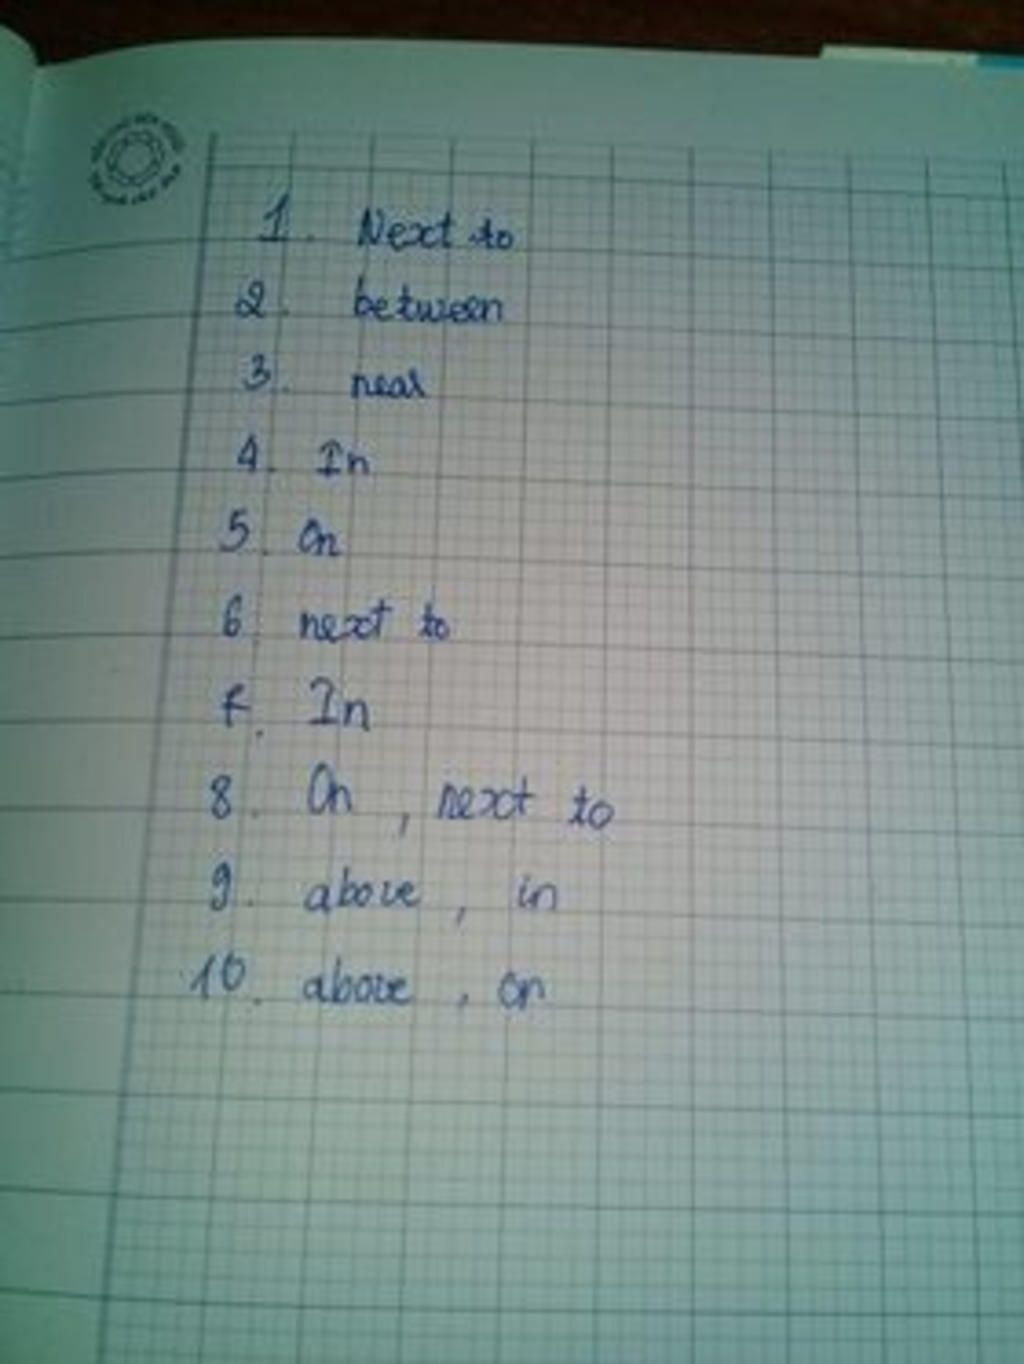 1. Next to
2. between
3. near
4. In
5. On
6. next to
7. In
8. On, next to
9. above, in
10. above, on